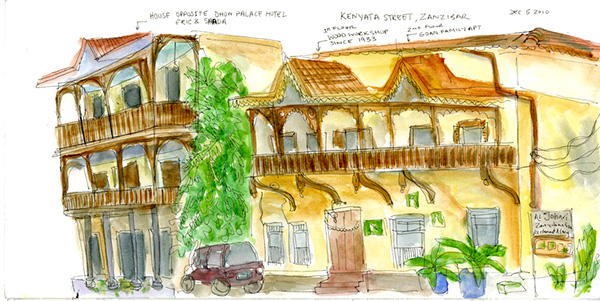 HOUSE OPPOSITE DHOW PALACE HOTEL
ERIC &
KENYATA STREET, ZANZIBAR
DEC 5 2010
1st FLOOR
WOOD WORKSHOP
SINCE 1933
2nd FLOOR
GOAN FAMILY APT
AL Johari
Zanzibar